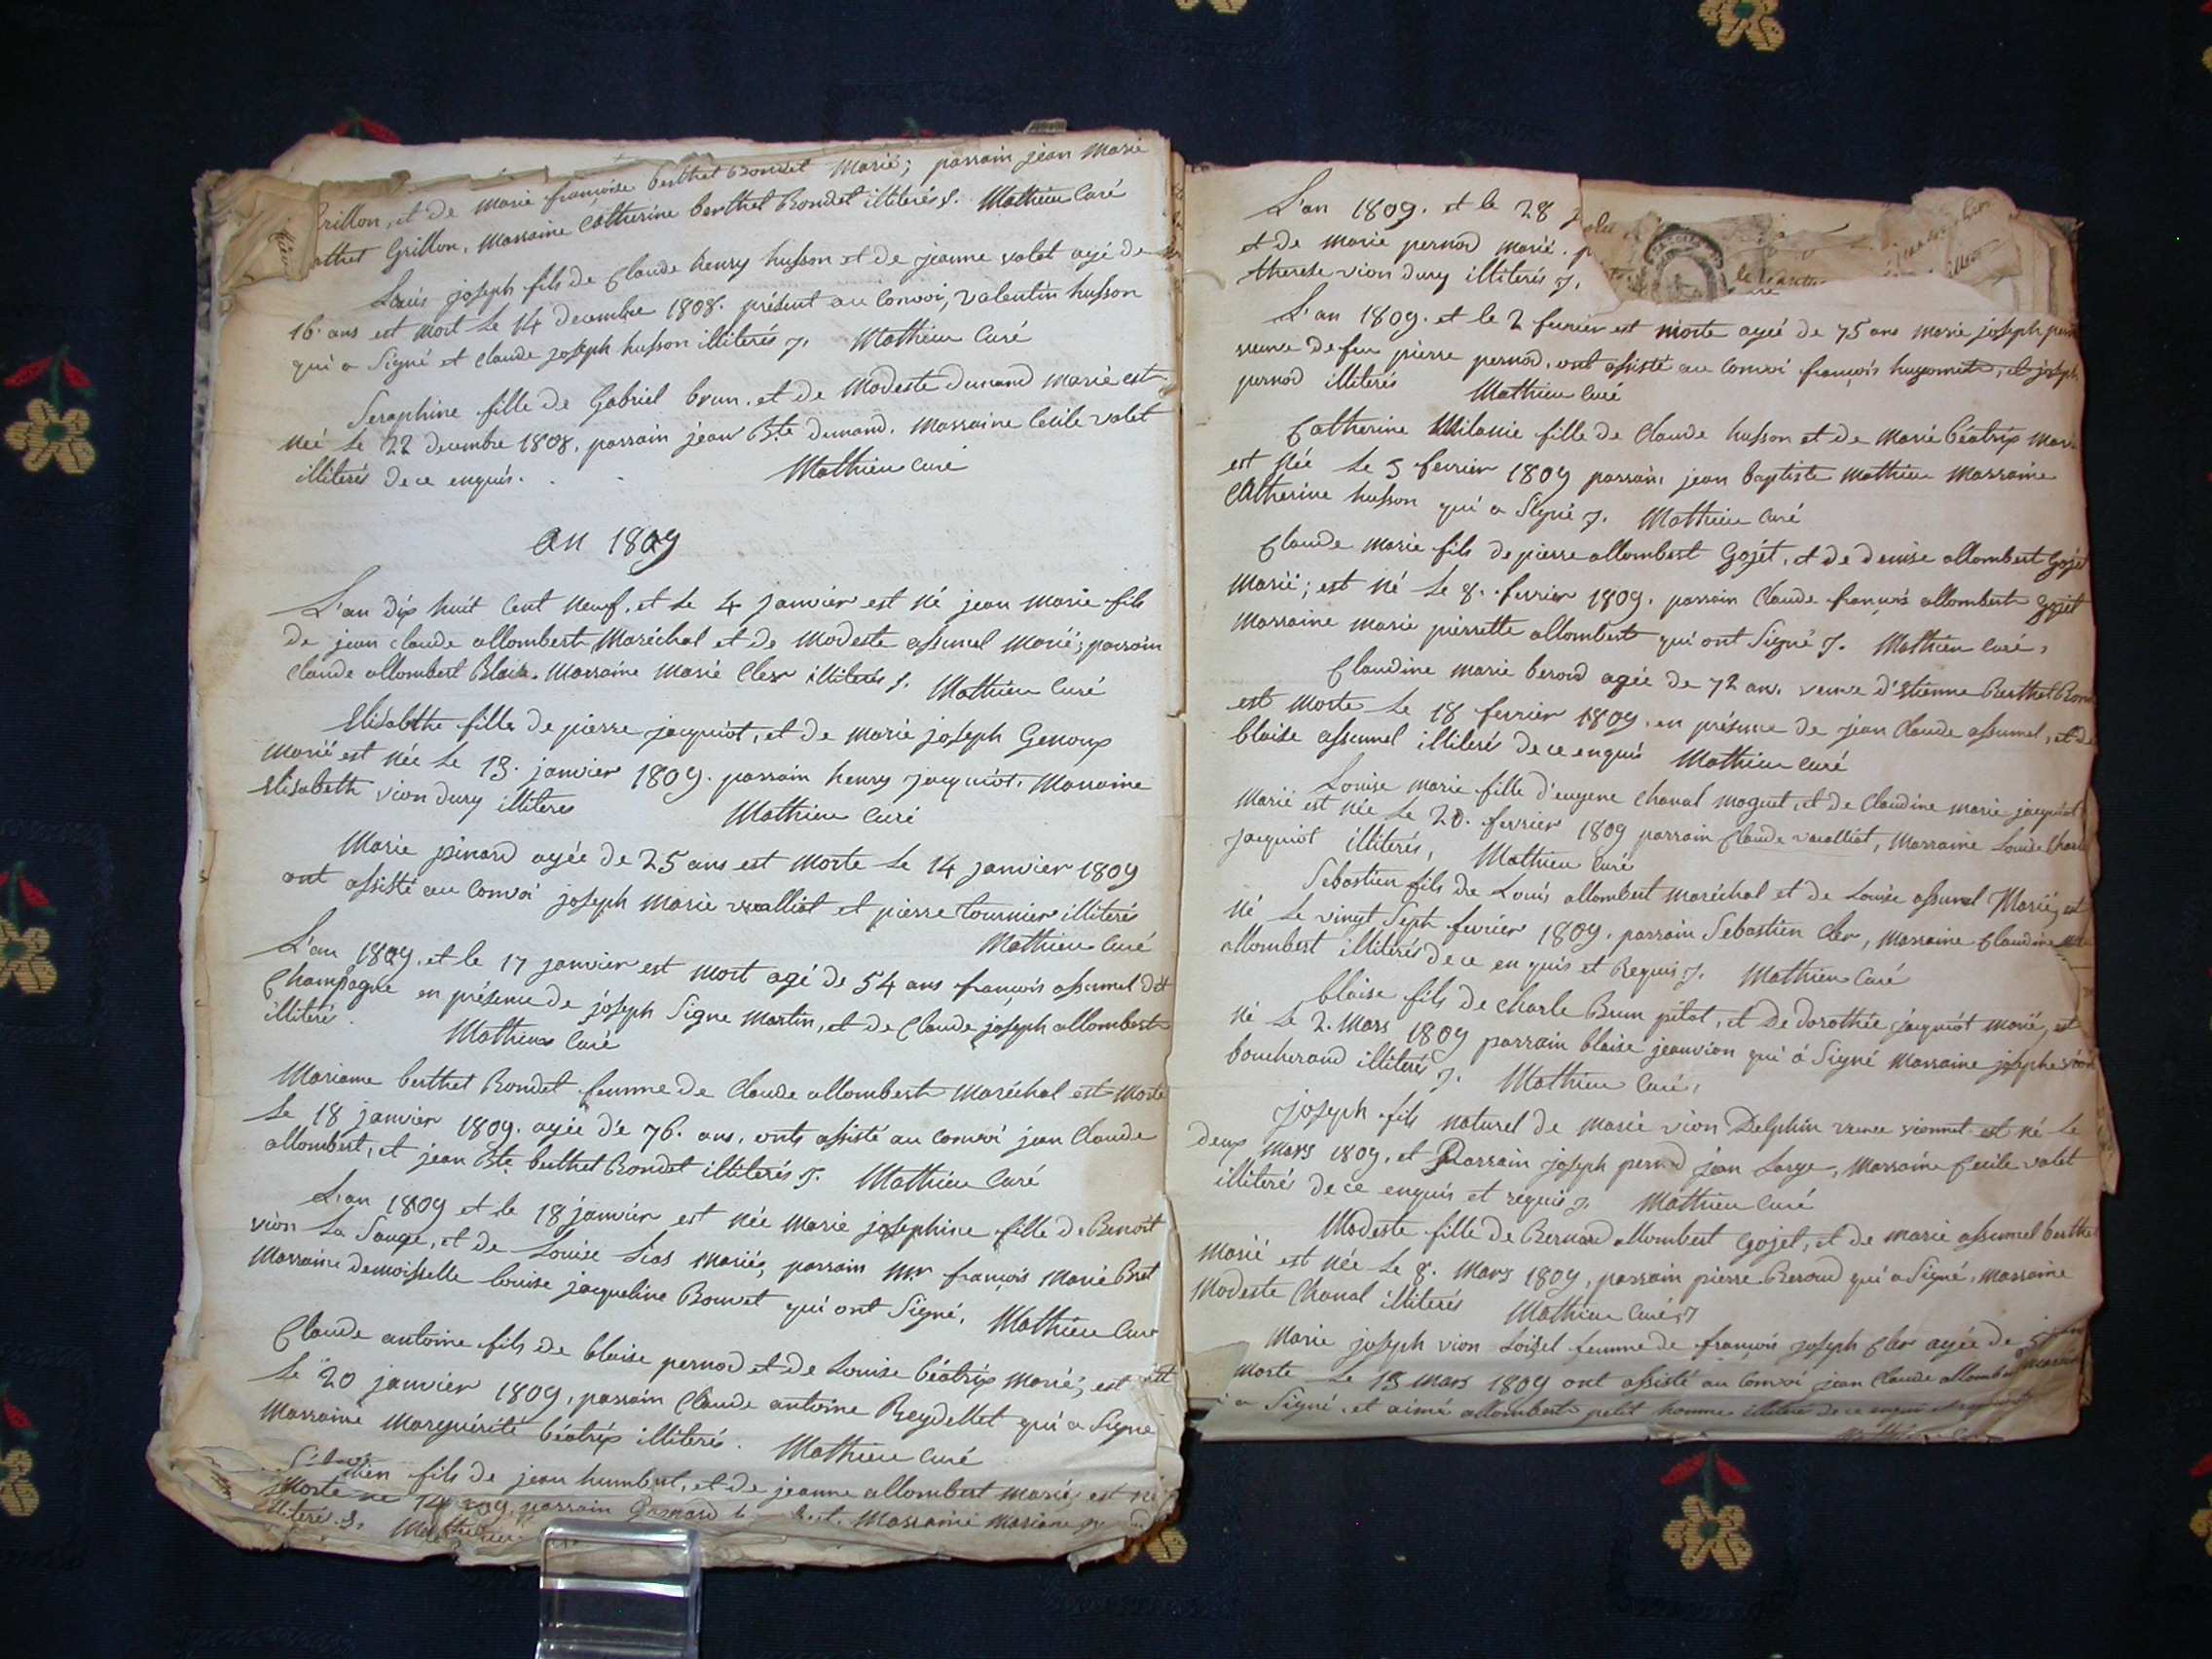 Grillon, et de marie françoise berthet Bondet Marié; parrain jean marie
berthet Grillon, Marraine Catherine berthet Bondet illiterés. Mathieu Curé
Louis joseph fils de Claude henry husson et de jeanne valet agé de
16. ans est mort le 14 decembre 1808. présent au Convoi, Valentin husson
qui a Signé et Claude joseph husson illiterés J. Mathieu Curé
Seraphine fille de Gabriel brun, et de Modeste dunand marié est
née le 22 decembre 1808, parrain jean Bte dunand. Marraine Cecile valet
illiterés de ce enquis. Mathieu curé
an 1809
L'an dix huit Cent neuf, et le 4 janvier est né jean marie fils
de jean claude allombert Maréchal et de Modeste assumel Marié; parrain
Claude allombert Blaise. Marraine Marie Cler illiterés J. Mathieu Curé
Elisabthe fille de pierre jacquiot, et de marie joseph Genoux
Marié est née le 13. janvier 1809. parrain henry jacquiot, Marraine
Elisabeth vion dury illiteres Mathieu Curé
Marie pinard agée de 25 ans est morte le 14 janvier 1809
ont assisté au Convoi joseph Marie vualliat et pierre tournier illiterés
Mathieu Curé
L'an 1809. et le 17 janvier est mort agé de 54 ans françois assumel dit
Champagne en présence de joseph Signe martin, et de Claude joseph allombert
illiteré. Mathieu Curé
Mariane berthet Bondet femme de Claude allombert Maréchal est Morte
Le 18 janvier 1809. agée de 76. ans, onts assisté au convoi jean Claude
allombert, et jean Bte berthet Bondet illiterés J. Mathieu Curé
L'an 1809 et le 18 janvier est née Marie josephine fille de Benoit
vion La Sauge, et de Louise Lias Marié; parrain Mr françois Marie Bret
Marraine demoisselle louise jacqueline Bouvet qui ont Signé, Mathieu Curé
Claude antoine fils de blaise pernod et de Louise béatrix Marié; est
Le 20 janvier 1809, parrain Claude antoine Reydellet qui a Signé
Marraine Marguérité béatrix illiterés. Mathieu Curé
fils de jean humbert, et de jeanne allombert marié; est né
parrain Marraine Mariane
illiteré J.
L'an 1809. et le 28
et de marie pernod marié.
therese vion dury illiterés J.
L'an 1809. et le 2 fevrier est morte agée de 75 ans marie joseph
veuve de feu pierre pernod, ont assisté au Convoi françois hugonnet, et joseph
pernod illiterés Mathieu Curé
Catherine Milanie fille de Claude husson et de Marie béatrix
est Née Le 5 fevrier 1809 parrain jean baptiste Mathieu Marraine
Catherine husson qui a Signé J. Mathieu Curé
Claude marie fils de pierre allombert Gojet, et de denise allombert Gojet
Marié; est né Le 8. fevrier 1809. parrain Claude françois allombert Gojet
Marraine marie pierrette allombert qui ont Signé J. Mathieu Curé,
Claudine marie beroud agée de 72 ans, veuve d'Etienne Berthet
est Morte Le 18 fevrier 1809, en présence de jean Claude assumel, et de
blaise assumel illiterés de ce enquis Mathieu Curé
Louise marie fille d'eugene Chanal moguet, et de Claudine marie jacquiot
Marié est née Le 20. fevrier 1809 parrain Claude vuaillat, Marraine Louise
jacquiot illiterés, Mathieu Curé
Sebastien fils de Louis allombert maréchal et de Louise assumel Marié, est
Né Le vingt Sept fevrier 1809, parrain Sebastien Cler, Marraine Claudine
allombert illiterés de ce en quis et Requis J. Mathieu Curé
blaise fils de Charle Brun pitot, et de Dorothée jacquiot marié, est
Né Le 2. Mars 1809 parrain blaise jeanvion qui á Signé Marraine josephe
boucherand illiterés J. Mathieu Curé,
joseph fils naturel de marie vion Delphin veuve vionnet est né Le
deux Mars 1809, et Parrain joseph pernod jean Large, Marraine Cecile valet
illiterés de ce enquis et requis J. Mathieu Curé
Modeste fille de Bernard allombert Gojet, et de marie assumel berthet
Marié est née Le 8. Mars 1809, parrain pierre Beroud qui a Signé, Marraine
Modeste Chanal illiterés Mathieu Curé J
Marie joseph vion Loisel femme de françois joseph Cler agée de
Morte Le 13 Mars 1809 ont assisté au Convoi jean Claude allombert
a Signé, et aimé allombert petit homme illiteré de ce enquis